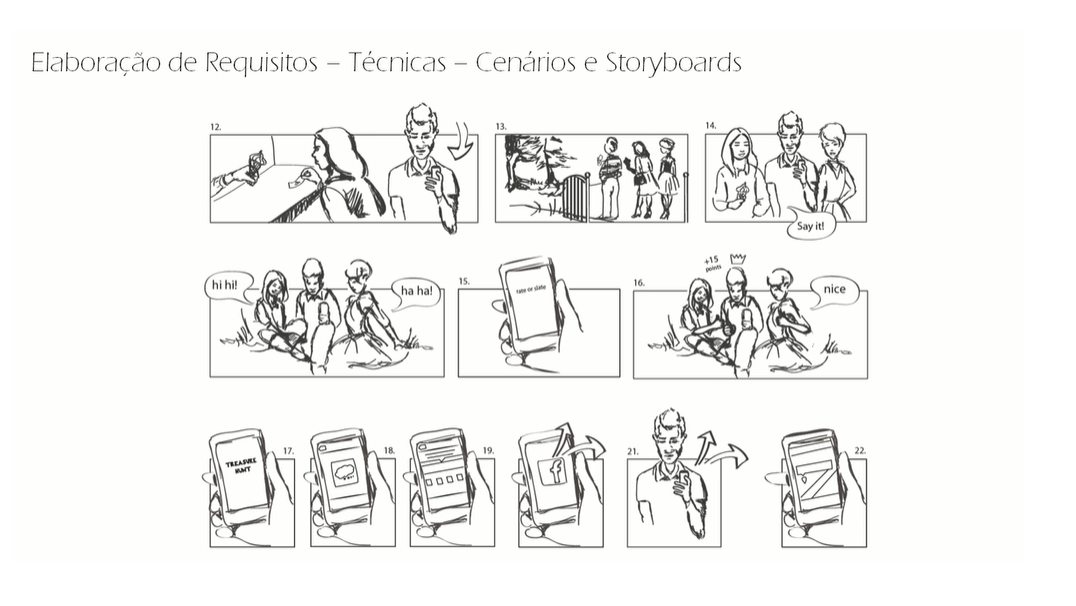 Elaboração de Requisitos – Técnicas – Cenários e Storyboards
12.
13.
14.
Say it!
hi hi!
ha ha!
15.
rate or slate
16.
+15
points
nice
TREASURE
HUNT
17.
18.
19.
f
21.
22.